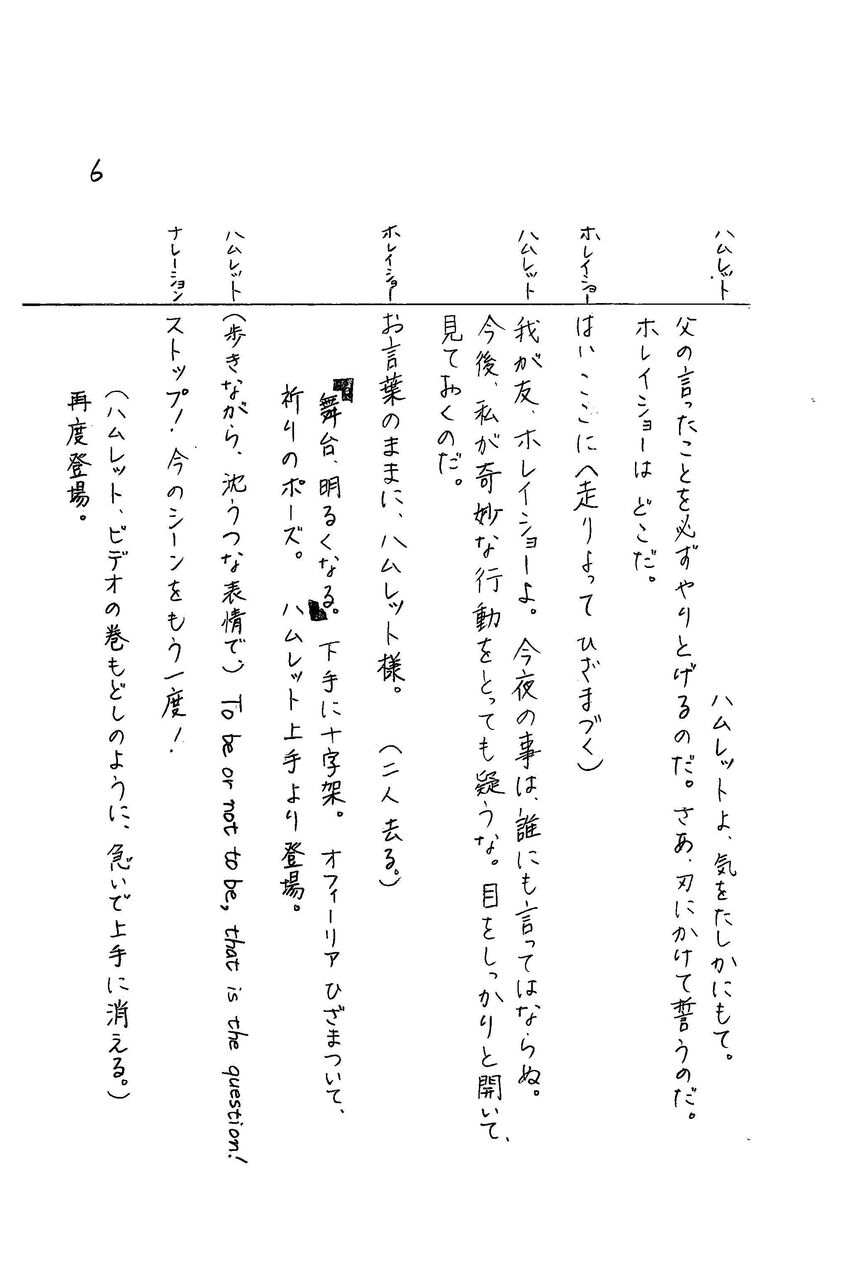 ハムレット ハムレットよ、気をたしかにもて。
父の言ったことを必ずやりとげるのだ。さあ、刃にかけて誓うのだ。
ホレイショーは どこだ。
ホレイショー はい ここに(走りよって ひざまづく)
ハムレット 我が友、ホレイショーよ。今夜の事は、誰にも言ってはならぬ。
今後、私が奇妙な行動をとっても疑うな。目をしっかりと開いて、
見ておくのだ。
ホレイショー お言葉のままに、ハムレット様。 (二人去る。)
舞台、明るくなる。下手に十字架。 オフィーリア ひざまついて、
祈りのポーズ。 ハムレット上手より登場。
ハムレット (歩きながら、沈うつな表情で) To be or not to be, that is the question!
ナレーション ストップ! 今のシーンをもう一度!
(ハムレット、ビデオの巻もどしのように、急いで上手に消える。)
再度登場。
6